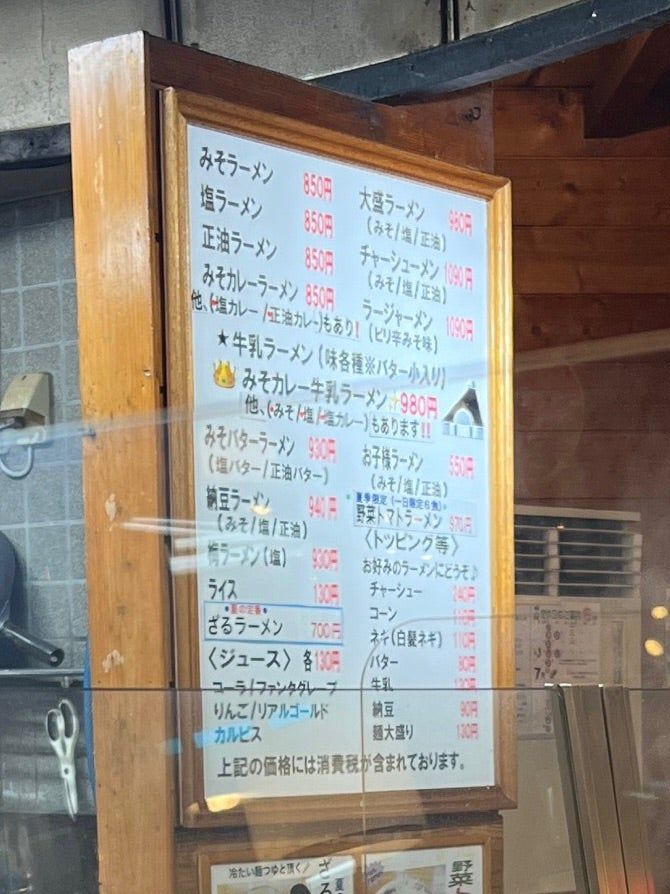 みそラーメン 850円
塩ラーメン 850円
正油ラーメン 850円
みそカレーラーメン 850円
他、(・塩カレー/・正油カレー)もあり!
大盛ラーメン 980円
(みそ/塩/正油)
チャーシューメン 1090円
(みそ/塩/正油)
ラージャーメン 1090円
(ピリ辛みそ味)
★牛乳ラーメン(味各種※バター小入り)
みそカレー牛乳ラーメン☆980円
他、(・みそ/・塩/・塩カレー)もあります!!
みそバターラーメン 930円
(塩バター/正油バター)
納豆ラーメン 940円
(みそ/塩/正油)
梅ラーメン(塩) 930円
ライス 130円
●夏の定番●
ざるラーメン 700円
〈ジュース〉各130円
コーラ/ファンタグレープ
りんご/リアルゴールド
カルピス
お子様ラーメン 550円
(みそ/塩/正油)
夏季限定(一日限定6食)
野菜トマトラーメン 970円
〈トッピング等〉
お好みのラーメンにどうぞ♪
チャーシュー 240円
コーン
ネギ(白髪ネギ) 110円
バター
牛乳
納豆 90円
麺大盛り 130円
上記の価格には消費税が含まれております。
冷たい麺つゆと頂く
ざる
野菜